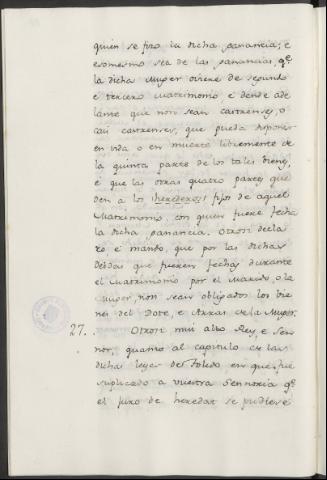 quien se fizo la dicha ganancia; e
esomesmo sea de las ganancias, qe
la dicha Muger oviere de segundo
e tercero Matrimonio, e dende ade
lante que non sean castrenses, o
casi castrenses, que pueda disponer
en vida o en muerte libremente de
la quinta parte de los tales bienes,
e que las otras quatro partes que
den a los herederos fijos de aquel
Matrimonio, con quien fuere fecha
la dicha ganancia. Otrosi decla
ro e mando, que por las dichas
Debdas que fueren fechas durante
el Matrimonio por el Marido, o la
Muger, non sean obligados los bie
nes del Dote, e Arras de la Muger.
27. Otrosi mui alto Rey, e Sen
nor, quanto al capitulo de las
dichas leyes de Toledo, en que fue
suplicado a vuestra Sennoria qe
el fixo de heredar se pudiese